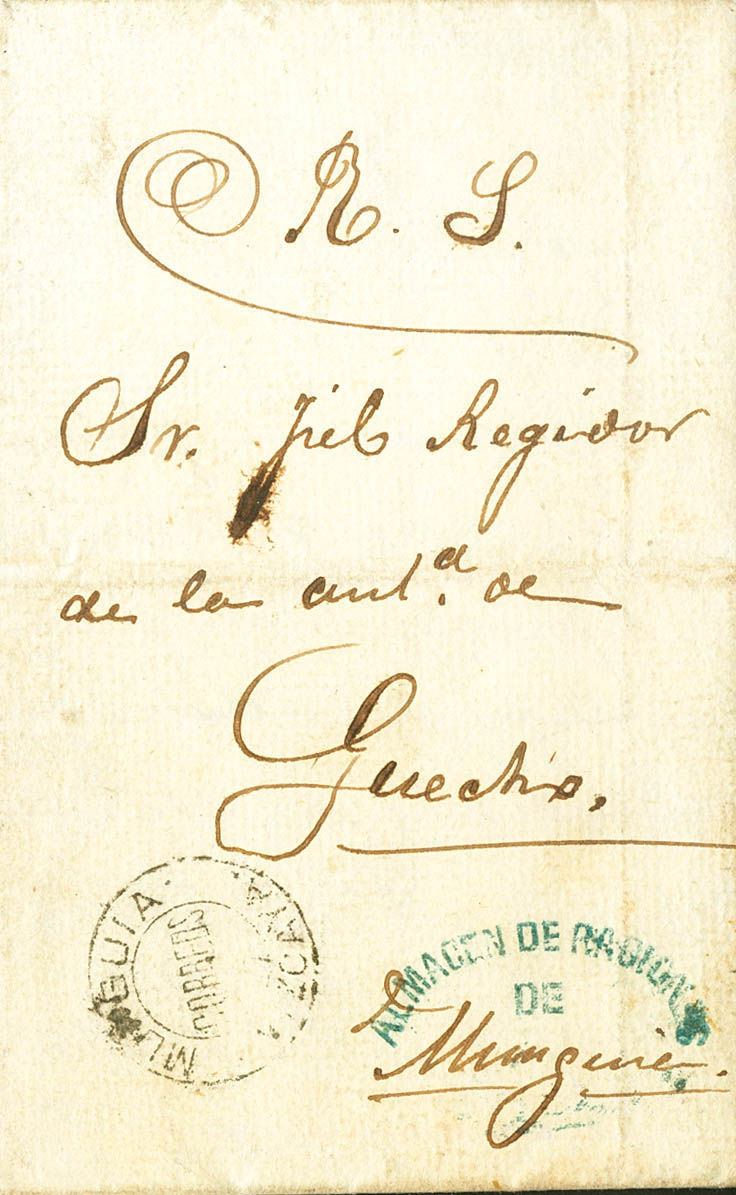 R. S.
Sr. Fiel Regidor
de la ant.d de
Guecho.
MUNGUIA.
VIZCAYA.
CORREOS
ALMACEN DE RACIONES
DE
Munguia.